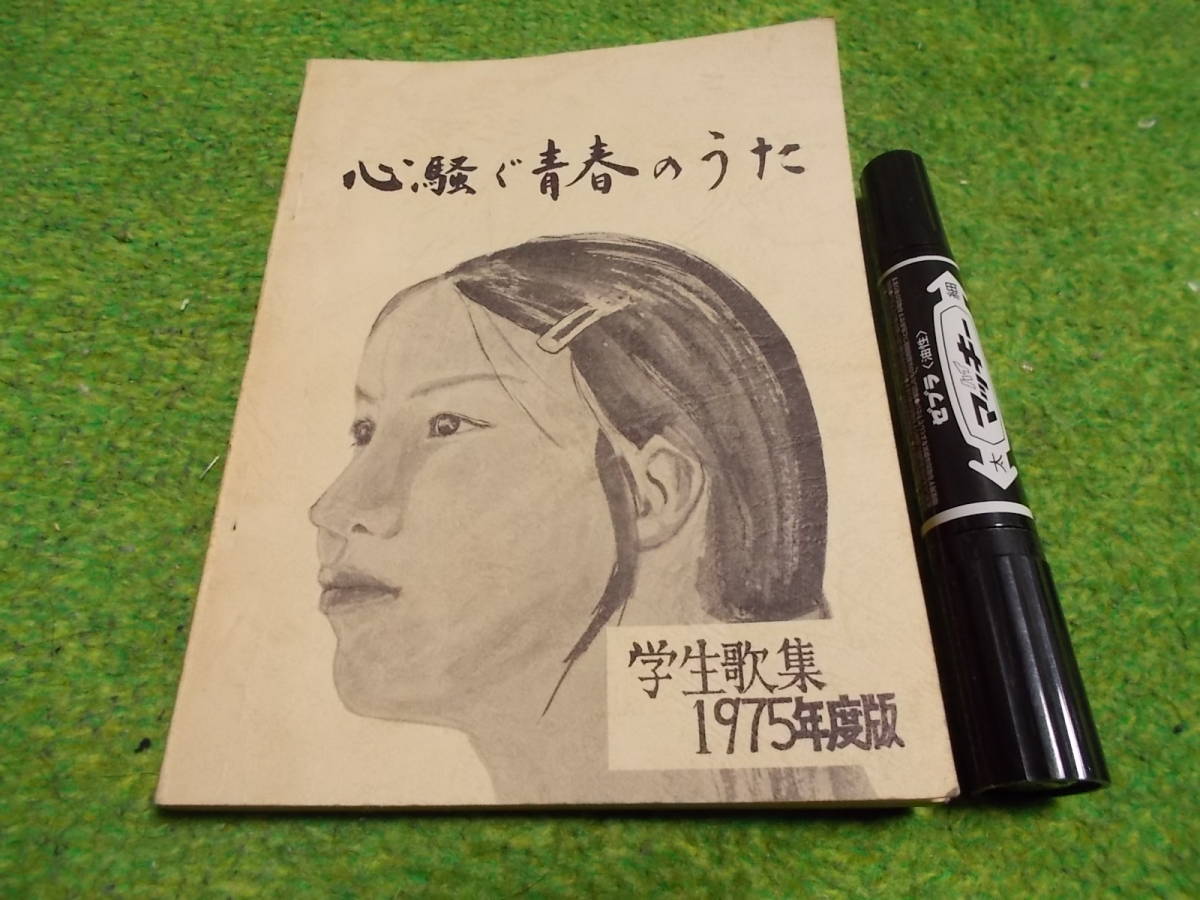 心騒ぐ青春のうた
学生歌集
1975年度版
ゼブラ〈油性〉
マッキー
細
太